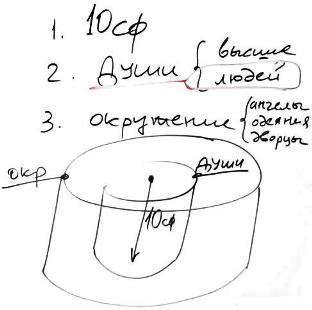 1. 10сф
2. Души { высшие
людей
3. окружение { ангелы
одеяния
дворцы
окр
Души
10сф